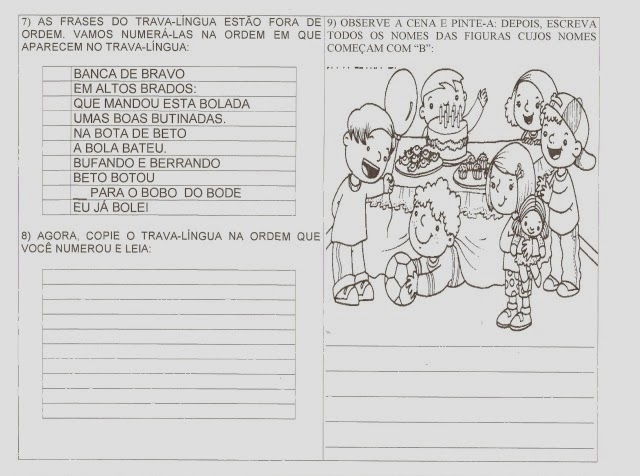 7) AS FRASES DO TRAVA-LÍNGUA ESTÃO FORA DE
ORDEM. VAMOS NUMERÁ-LAS NA ORDEM EM QUE
APARECEM NO TRAVA-LÍNGUA:
BANCA DE BRAVO
EM ALTOS BRADOS:
QUE MANDOU ESTA BOLADA
UMAS BOAS BUTINADAS.
NA BOTA DE BETO
A BOLA BATEU.
BUFANDO E BERRANDO
BETO BOTOU
__ PARA O BOBO DO BODE
EU JÁ BOLEI
8) AGORA, COPIE O TRAVA-LÍNGUA NA ORDEM QUE
VOCÊ NUMEROU E LEIA:
9) OBSERVE A CENA E PINTE-A: DEPOIS, ESCREVA
TODOS OS NOMES DAS FIGURAS CUJOS NOMES
COMEÇAM COM “B”: